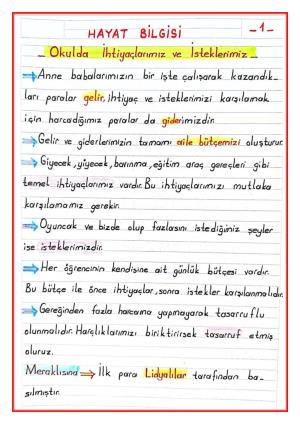 HAYAT BİLGİSİ -1-
Okulda İhtiyaçlarımız ve İsteklerimiz
⇒Anne babalarımızın bir işte çalışarak kazandık-
ları paralar gelir, ihtiyaç ve isteklerimizi karşılamak
için harcadığımız paralar da giderimizdir.
⇒Gelir ve giderlerimizin tamamı aile bütçemizi oluşturur.
⇒Giyecek, yiyecek, barınma, eğitim araç gereçleri gibi
temel ihtiyaçlarımız vardır. Bu ihtiyaçlarımızı mutlaka
karşılamamız gerekir.
⇒Oyuncak ve bizde olup fazlasını istediğimiz şeyler
ise isteklerimizdir.
⇒Her öğrencinin kendisine ait günlük bütçesi vardır.
Bu bütçe ile önce ihtiyaçlar, sonra istekler karşılanmalıdır.
⇒Gereğinden fazla harcama yapmayarak tasarruflu
olunmalıdır. Harçlıklarımızı biriktirirsek tasarruf etmiş
oluruz.
Meraklısına⇒ İlk para Lidyalılar tarafından ba-
sılmıştır.